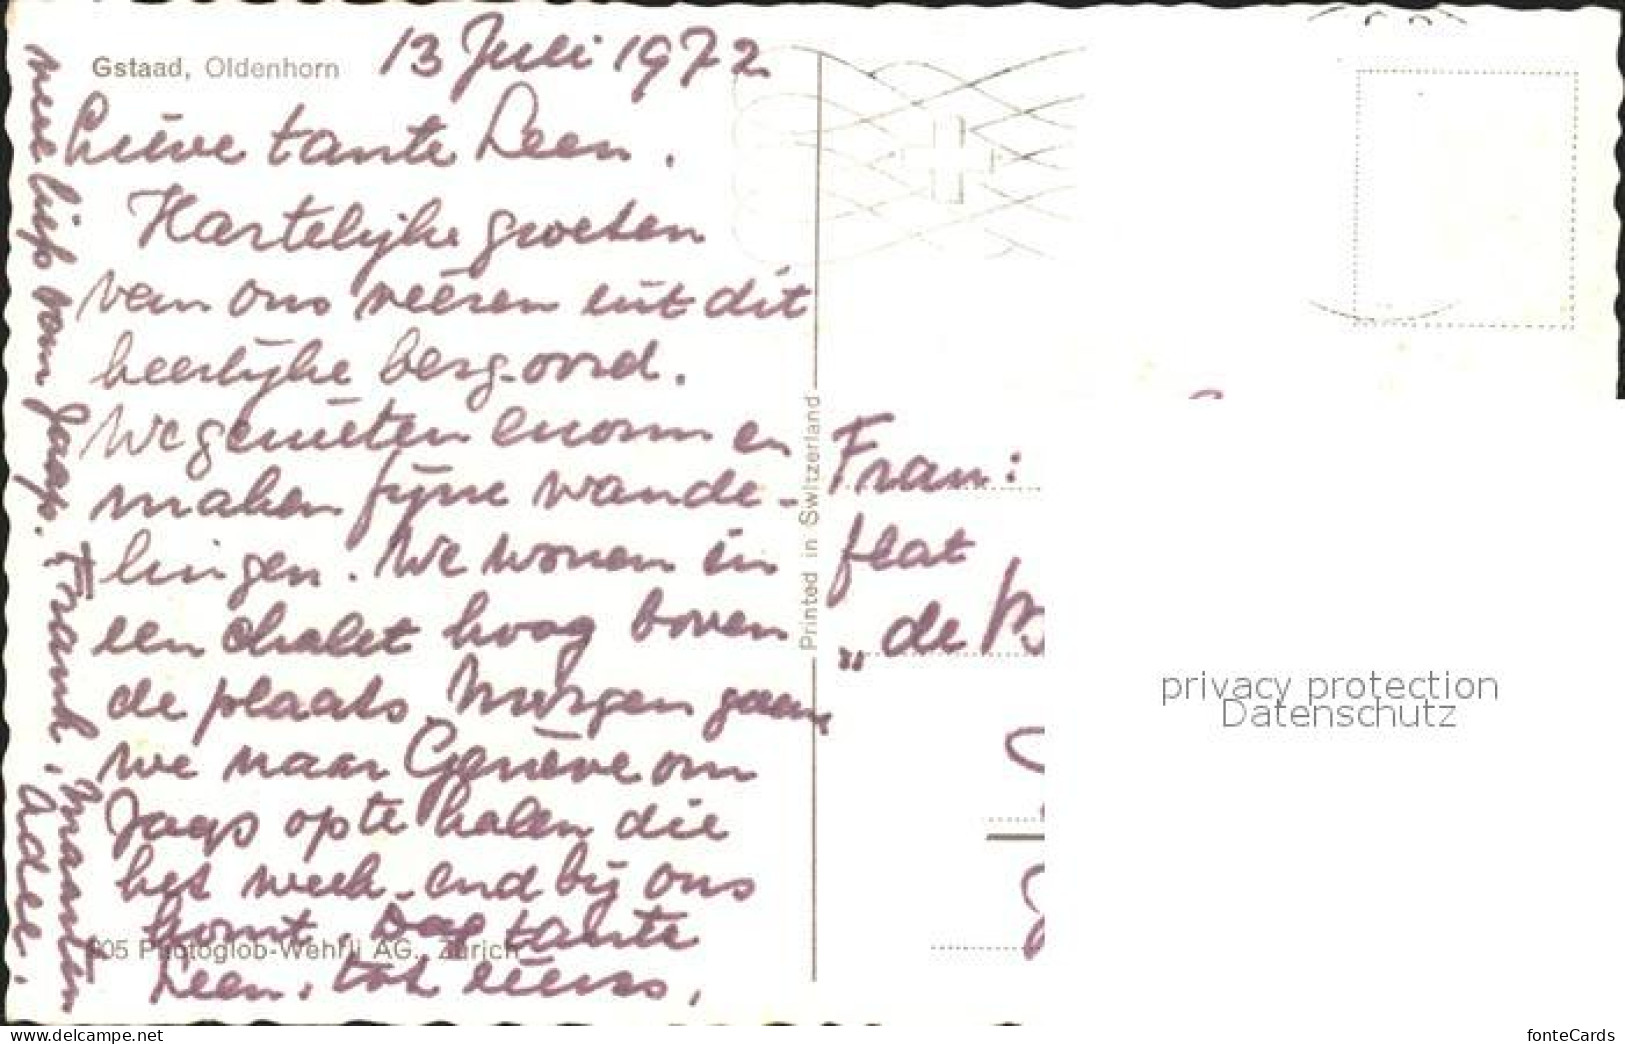 Gstaad, Oldenhorn
13 Juli 1972
Lieve tante Leen.
Hartelijke groeten
van ons viéren uit dit
heerlijke berg-oord.
We genieten enorm en
maken fijne wande-
lingen. We wonen in
een chalet hoog boven
de plaats. Morgen gaan
we naar Genève om
Jaap op te halen die
het week-end bij ons
komt. Dag tante
Leen, tot ziens,
veel liefs van Jaap. Frank. Maarten
Adee.
505 Photoglob-Wehrli AG., Zürich
Printed in Switzerland
flat
„de
privacy protection
Datenschutz
www.delcampe.net
fonteCards